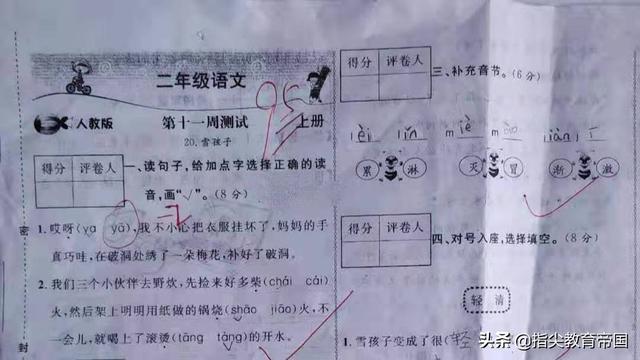 二年级语文
95
人教版 第十一周测试 上册
20.雪孩子
得分 评卷人
一、读句子,给加点字选择正确的读
音,画“√”。(8分)
-2
1. 哎呀(ya yā),我不小心把衣服挂坏了,妈妈的手
真巧哇,在破洞处绣了一朵梅花,补好了破洞。
2. 我们三个小伙伴去野炊,先捡来好多柴(chái cái)
火,然后架上明明用纸做的锅烧(shāo jiāo)火,不
一会儿,就喝上了滚烫(tāng tàng)的开水。
密
封
得分 评卷人
三、补充音节。(6分)
lèi lín miè mào jiàn jī
累 淋 灭 冒 渐 激
得分 评卷人
四、对号入座,选择填空。(8分)
轻 清
1. 雪孩子变成了很(轻
头条 @指尖教育帝国